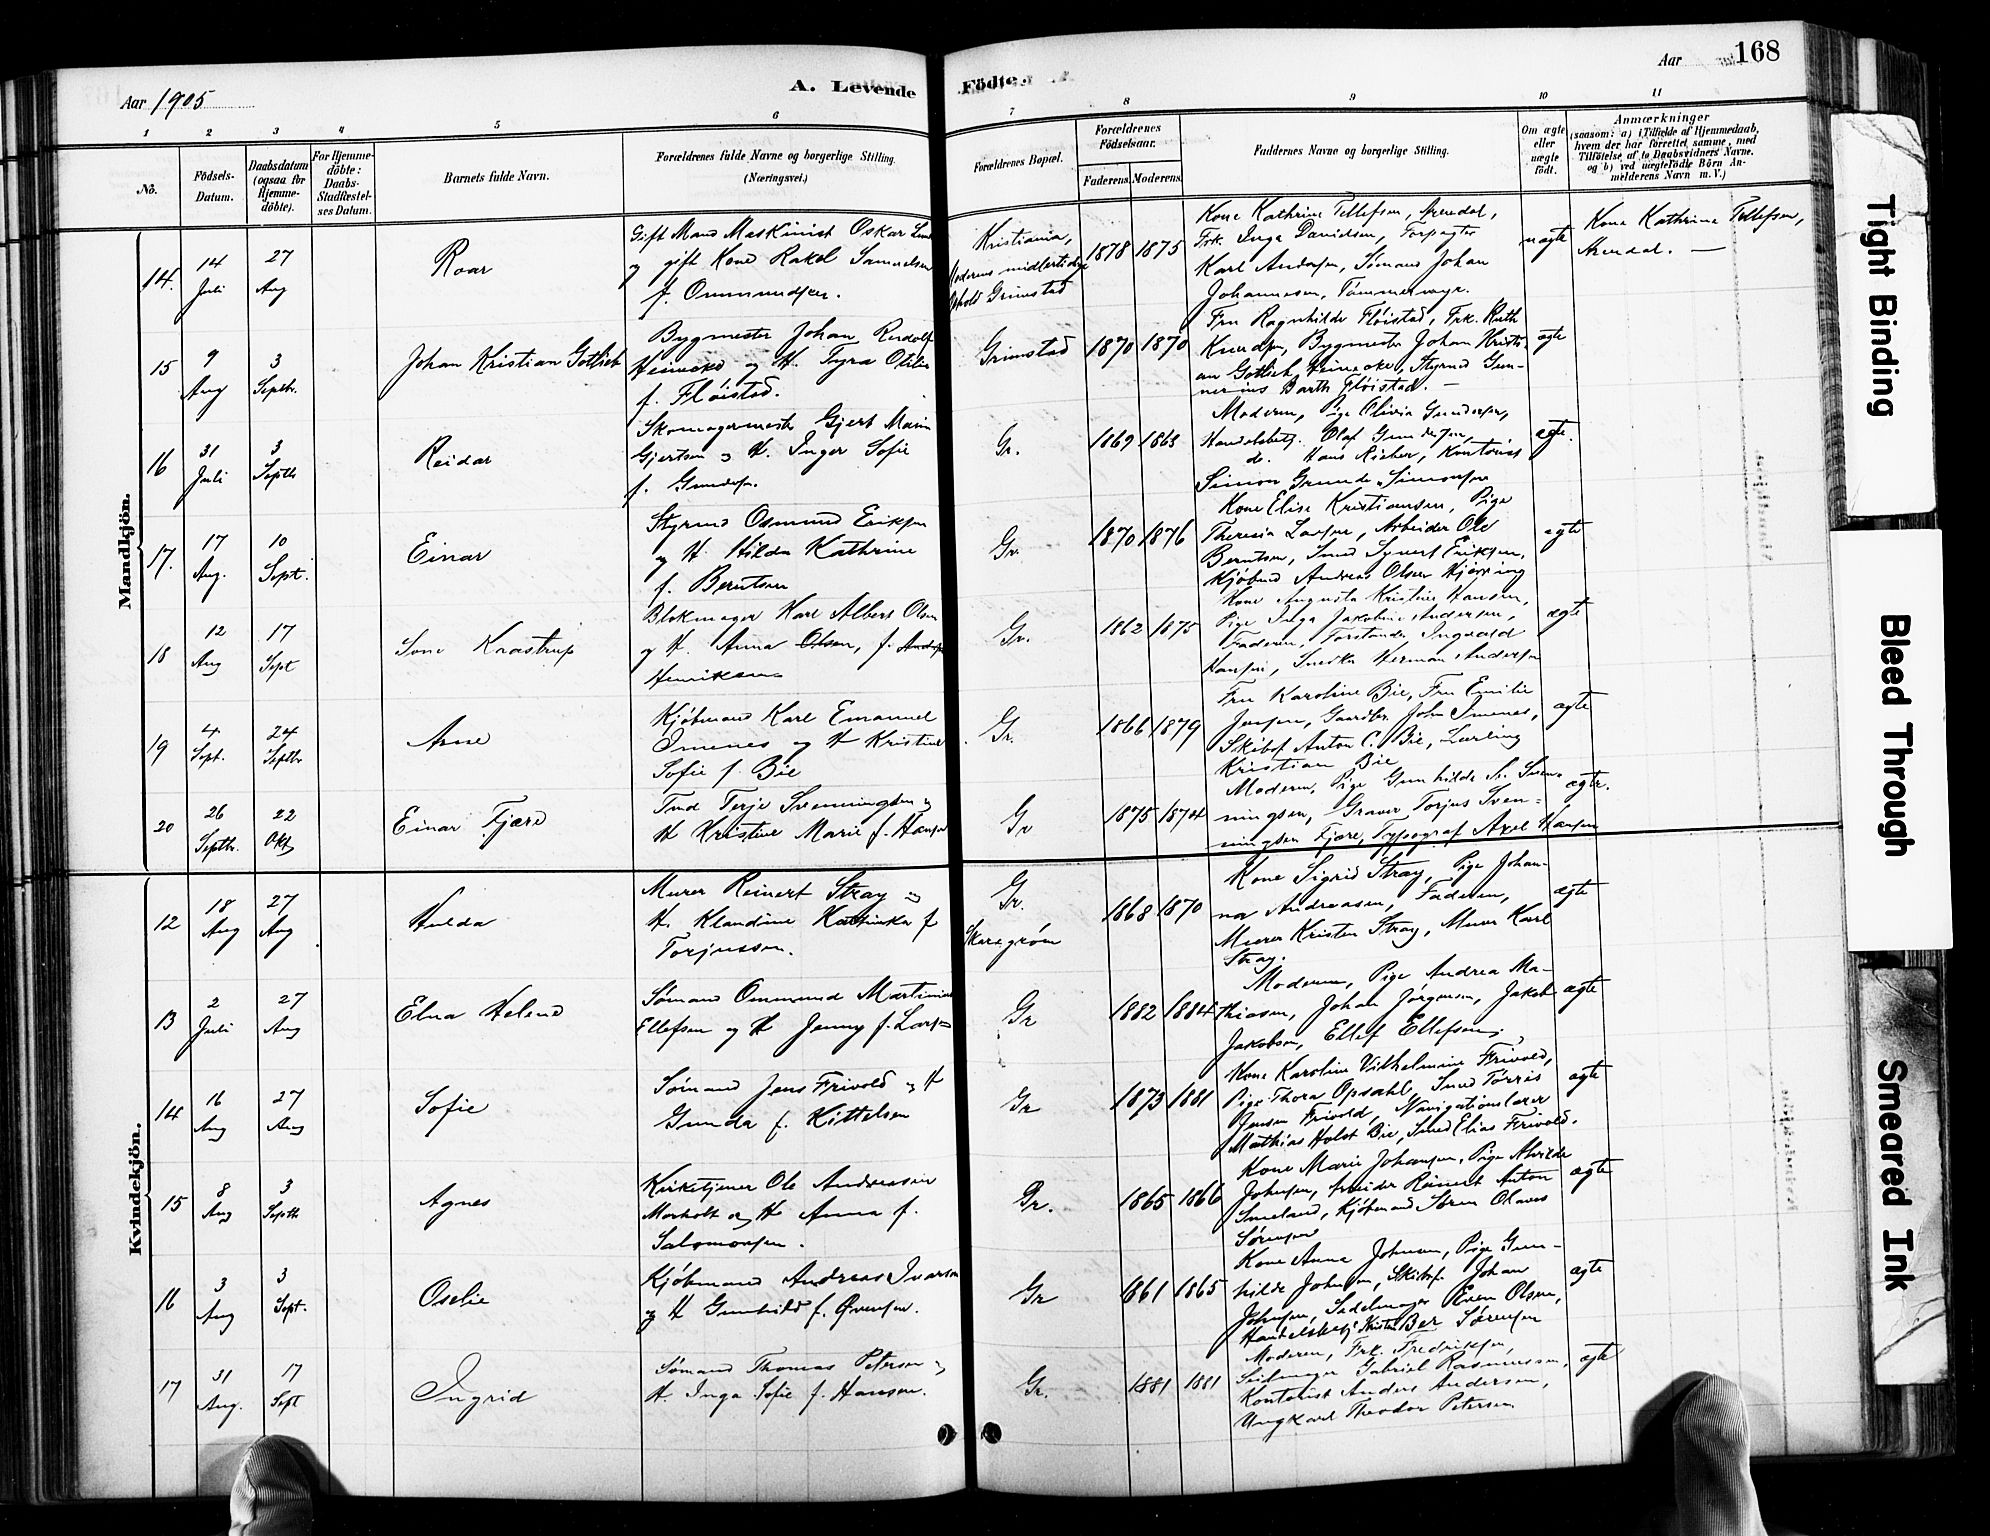 168
Aar 1905
A. Levende Födte.
Aar
1 2 3 4 5 6 7 8 9 10 11
No.
Födsels-
Datum.
Daabsdatum
(ogsaa for
Hjemme-
döbte).
For Hjemme-
döbte:
Daabs-
Stadfæstel-
ses Datum.
Barnets fulde Navn.
Forældrenes fulde Navne og borgerlige Stilling.
(Næringsvei.)
Forældrenes Bopæl.
Forældrenes
Födselsaar.
Faderens. Moderens.
Faddernes Navne og borgerlige Stilling.
Om ægte
eller
uægte
födt.
Anmærkninger
(saasom: a) i Tilfælde af Hjemmedaab,
hvem der har forrettet samme, med
Tilföielse af to Daabsvidners Navne.
og b) ved uægtefödte Börn An-
melderens Navn m. V.)
Mandkjön.
14.
14
Juli
27
Aug
Roar
Gift Mand Maskinist Oskar
og gift Kone Rakel Samuelsen
f. Ommundsen.
Kristiania,
Moderens midlertidige
Ophold Grimstad
1878 1875
Kone Kathrine Tellefsen, Arendal,
Frk. Inga Davidsen, Forpagter
Karl Andersen, Sømand Johan
Johannesen, Tømmermægr.
uægte
Kone Kathrine Tellefsen,
Arendal. —
15
9
Aug
3
Septbr.
Johan Kristian Gotlieb
Bygmester Johan Rudolf
Heinecke og H. Tyra Otilie
f. Fløistad.
Grimstad
1870 1870
Fru Ragnhilde Fløistad, Frk. Ruth
Knudsen, Bygmester Johan Kristi-
an Gotlieb Heinecke, Styrmd Gun-
nerius Barth Fløistad. —
ægte
16
31
Juli
3
Septb
Reidar
Skomagermester Gjert Marin
Gjertsen og H. Inger Sofie
f. Gundersen.
Gr.
1869 1863
Moderen, Pige Olivia Gundersen,
Handelsbetj. Olaf Gundersen,
do. Hans Richer, Kontorist
Simon Grunde Simonsen
ægte.
17.
17
Aug.
10
Sept.
Einar
Styrmd Osmund Eriksen
og H. Hilda Kathrine
f. Berntsen
Gr.
1870 1876
Kone Elise Kristiansen, Pige
Theresia Larsen, Arbeider Ole
Berntsen, Smed Syvert Eriksen,
Kjøbmd Andreas Olsen Hjørring
ægte
18
12
Aug
17
Sept
Sone Krastrup
Blokmager Karl Albert Olsen
og H. Anna Olsen, f.
Henriksen
Gr.
1862 1875
Kone Augusta Kristine Hansen,
Pige Inga Jakobine Andersen,
Faderen, Forstander Ingvald
Hansen, Snedker Herman Andersen
ægte
19
4
Sept.
24
Septbr
Arne
Kjøbmand Karl Emanuel
Imenes og H Kristine
Sofie f. Bie
Gr.
1866 1879
Fru Karoline Bie, Fru Emilie
Jensen, Gaardbr. John Imenes,
Skibsf. Anton C. Bie, Lærling
Kristian Bie
ægte
20
26
Septbr.
22
Oktr
Einar Fjære
Tmd Terje Svenningsen og
H Kristine Marie f. Hansen
Gr
1875 1874
Moderen, Pige Gunhilde S. Sven-
ningsen, Graver Torjus Sven-
ningsen Fjære, Typograf Axel Hansen
ægte.
Kvindekjön.
12
18
Aug
27
Aug
Hulda
Murer Reinert Stray og
H. Klandine Kathinka f
Torjussen.
Gr.
Skaregrøm
1868 1870
Kone Sigrid Stray, Pige Johan-
na Andreasen, Faderen,
Murer Kristen Stray, Murer Karl
Stray.
ægte
13
2
Juli
27
Aug
Elna Helene
Sømand Ommund Martinius
Ellefsen og H Jenny f. Larsen
Gr
1882 1884
Moderen, Pige Andrea Ma-
thiasen, Johan Jørgensen, Jakob
Jakobsen, Ellef Ellefsen.
ægte
14
16
Aug
27
Aug
Sofie
Sømand Jens Frivold og H
Gunda f. Kittelsen
Gr
1873 1881
Kone Karoline Vilhelmine Frivold,
Pige Thora Opsahl, Smed Tørris
Jensen Frivold, Navigationslærer
Mathias Holst Bie, Smed Elias Frivold.
ægte
15
8
Aug
3
Septb
Agnes
Kirketjener Ole Andreasen
Morholt og H Anna f.
Salomonsen.
Gr.
1865 1866
Kone Marie Johansen, Pige Alvilde
Johnsen, Arbeider Reinert Anton
Smeland, Kjøbmand Søren Olaves
Sørensen
ægte
16
3
Aug
3
Sept.
Oselie
Kjøbmand Andreas Ivarsen
og H Gunhild f. Øvensen.
Gr
1861 1865
Kone Anna Johnsen, Pige Gun-
hilde Johnsen, Skibsf. Johan
Johnsen, Sadelmager Even Olsen,
Handelsbetj. Kristen Ber Sørensen
ægte
17
31
Aug.
17
Sept
Ingrid
Sømand Thomas Petersen og
H. Inga Sofie f. Hansen.
Gr.
1881 1881
Moderen, Frk. Fredriksen,
Seilmager Gabriel Rasmussen,
Kontorist Anders Andersen,
Ungkarl Theodor Petersen
ægte
Tight Binding
Bleed Through
Smeared Ink